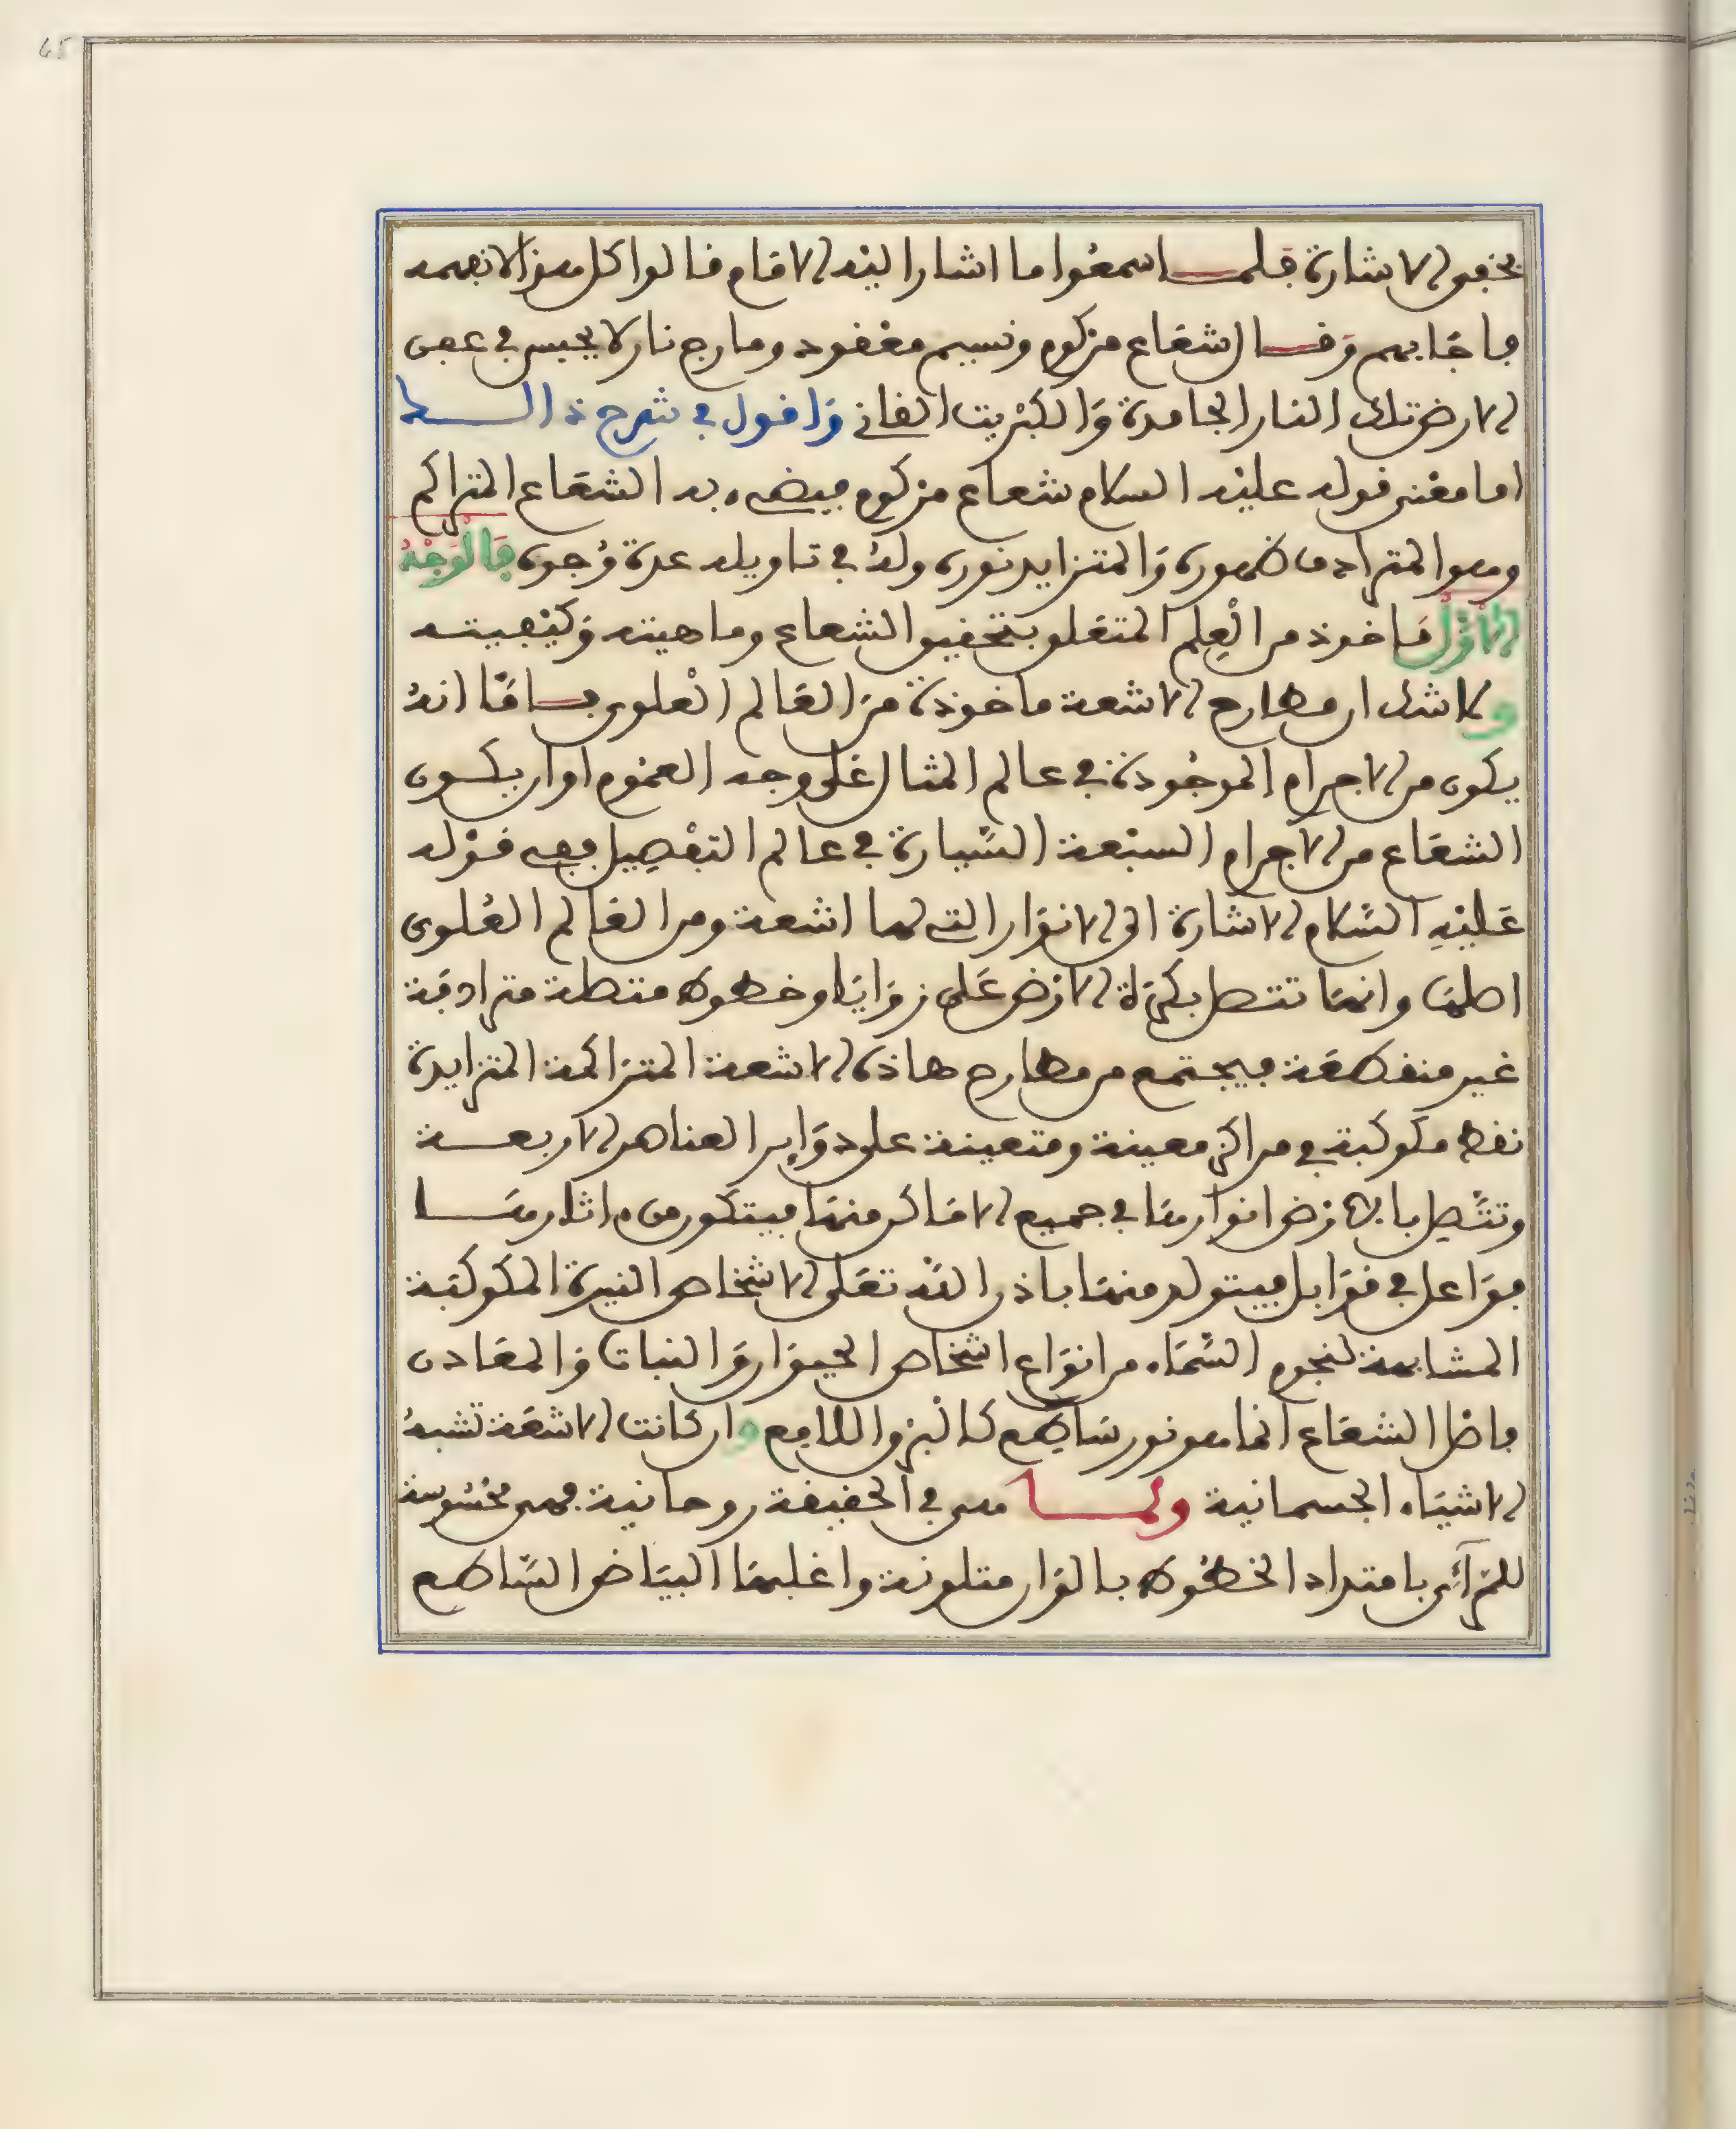 بخفى الاشارة فلما سمعوا ما اشار اليه الامام قالوا كل هؤلاء نفهمه
فاجابهم وقال شعاع مركوم ونسيم معقود ومارج نار لا يحبس في عمق
الارض تلك النار الجامدة والكبريت القاني واقول في شرح ذالك
اما معنى قوله عليه السلام شعاع مركوم فيعني به الشعاع المتراكم
وهو المترادف ظهوره والمتزايد نوره وله في تاويله عدة وجوه فالوجه
الاول ماخوذ من العلم المتعلق بتحقيق الشعاع وماهيته وكيفيته
ولا شك ان مطارح الاشعة ماخوذة من العالم العلوي فاما انه
يكون من الاجرام الموجودة في عالم المثال على وجه العموم او ان يكون
الشعاع من الاجرام السبعة السيارة في عالم التفصيل ففي قوله
عليه السلام الاشارة الى الانوار التي لها اشعة ومن العالم العلوي
اصلها وانها تتصل بكرة الارض على زوايا وخطوط متصلة مترادفة
غير منقطعة فيجتمع من مطارح هاذه الاشعة المتراكمة المتزايدة
نقط مكوكبة في مراكز معينة ومتعينة على دواير العناصر الاربعة
وتتصل بالارض انوارها في جميع الاماكن منها فيتكون من اثارها
فواعل في قوابل فيتولد منها باذن الله تعلى الاشخاص النيرة المكوكبة
المشابهة لنجوم السماء من انواع اشخاص الحيوان والنبات والمعادن
فاصل الشعاع انما هو نور ساطع كالبرق اللامع وان كانت الاشعة تشبه
الاشياء الجسمانية ولما هي في الحقيقة روحانية فهي محسوسة
للرآئي بامتداد الخطوط بالوان متلونة واغلبها البياض الساطع
65